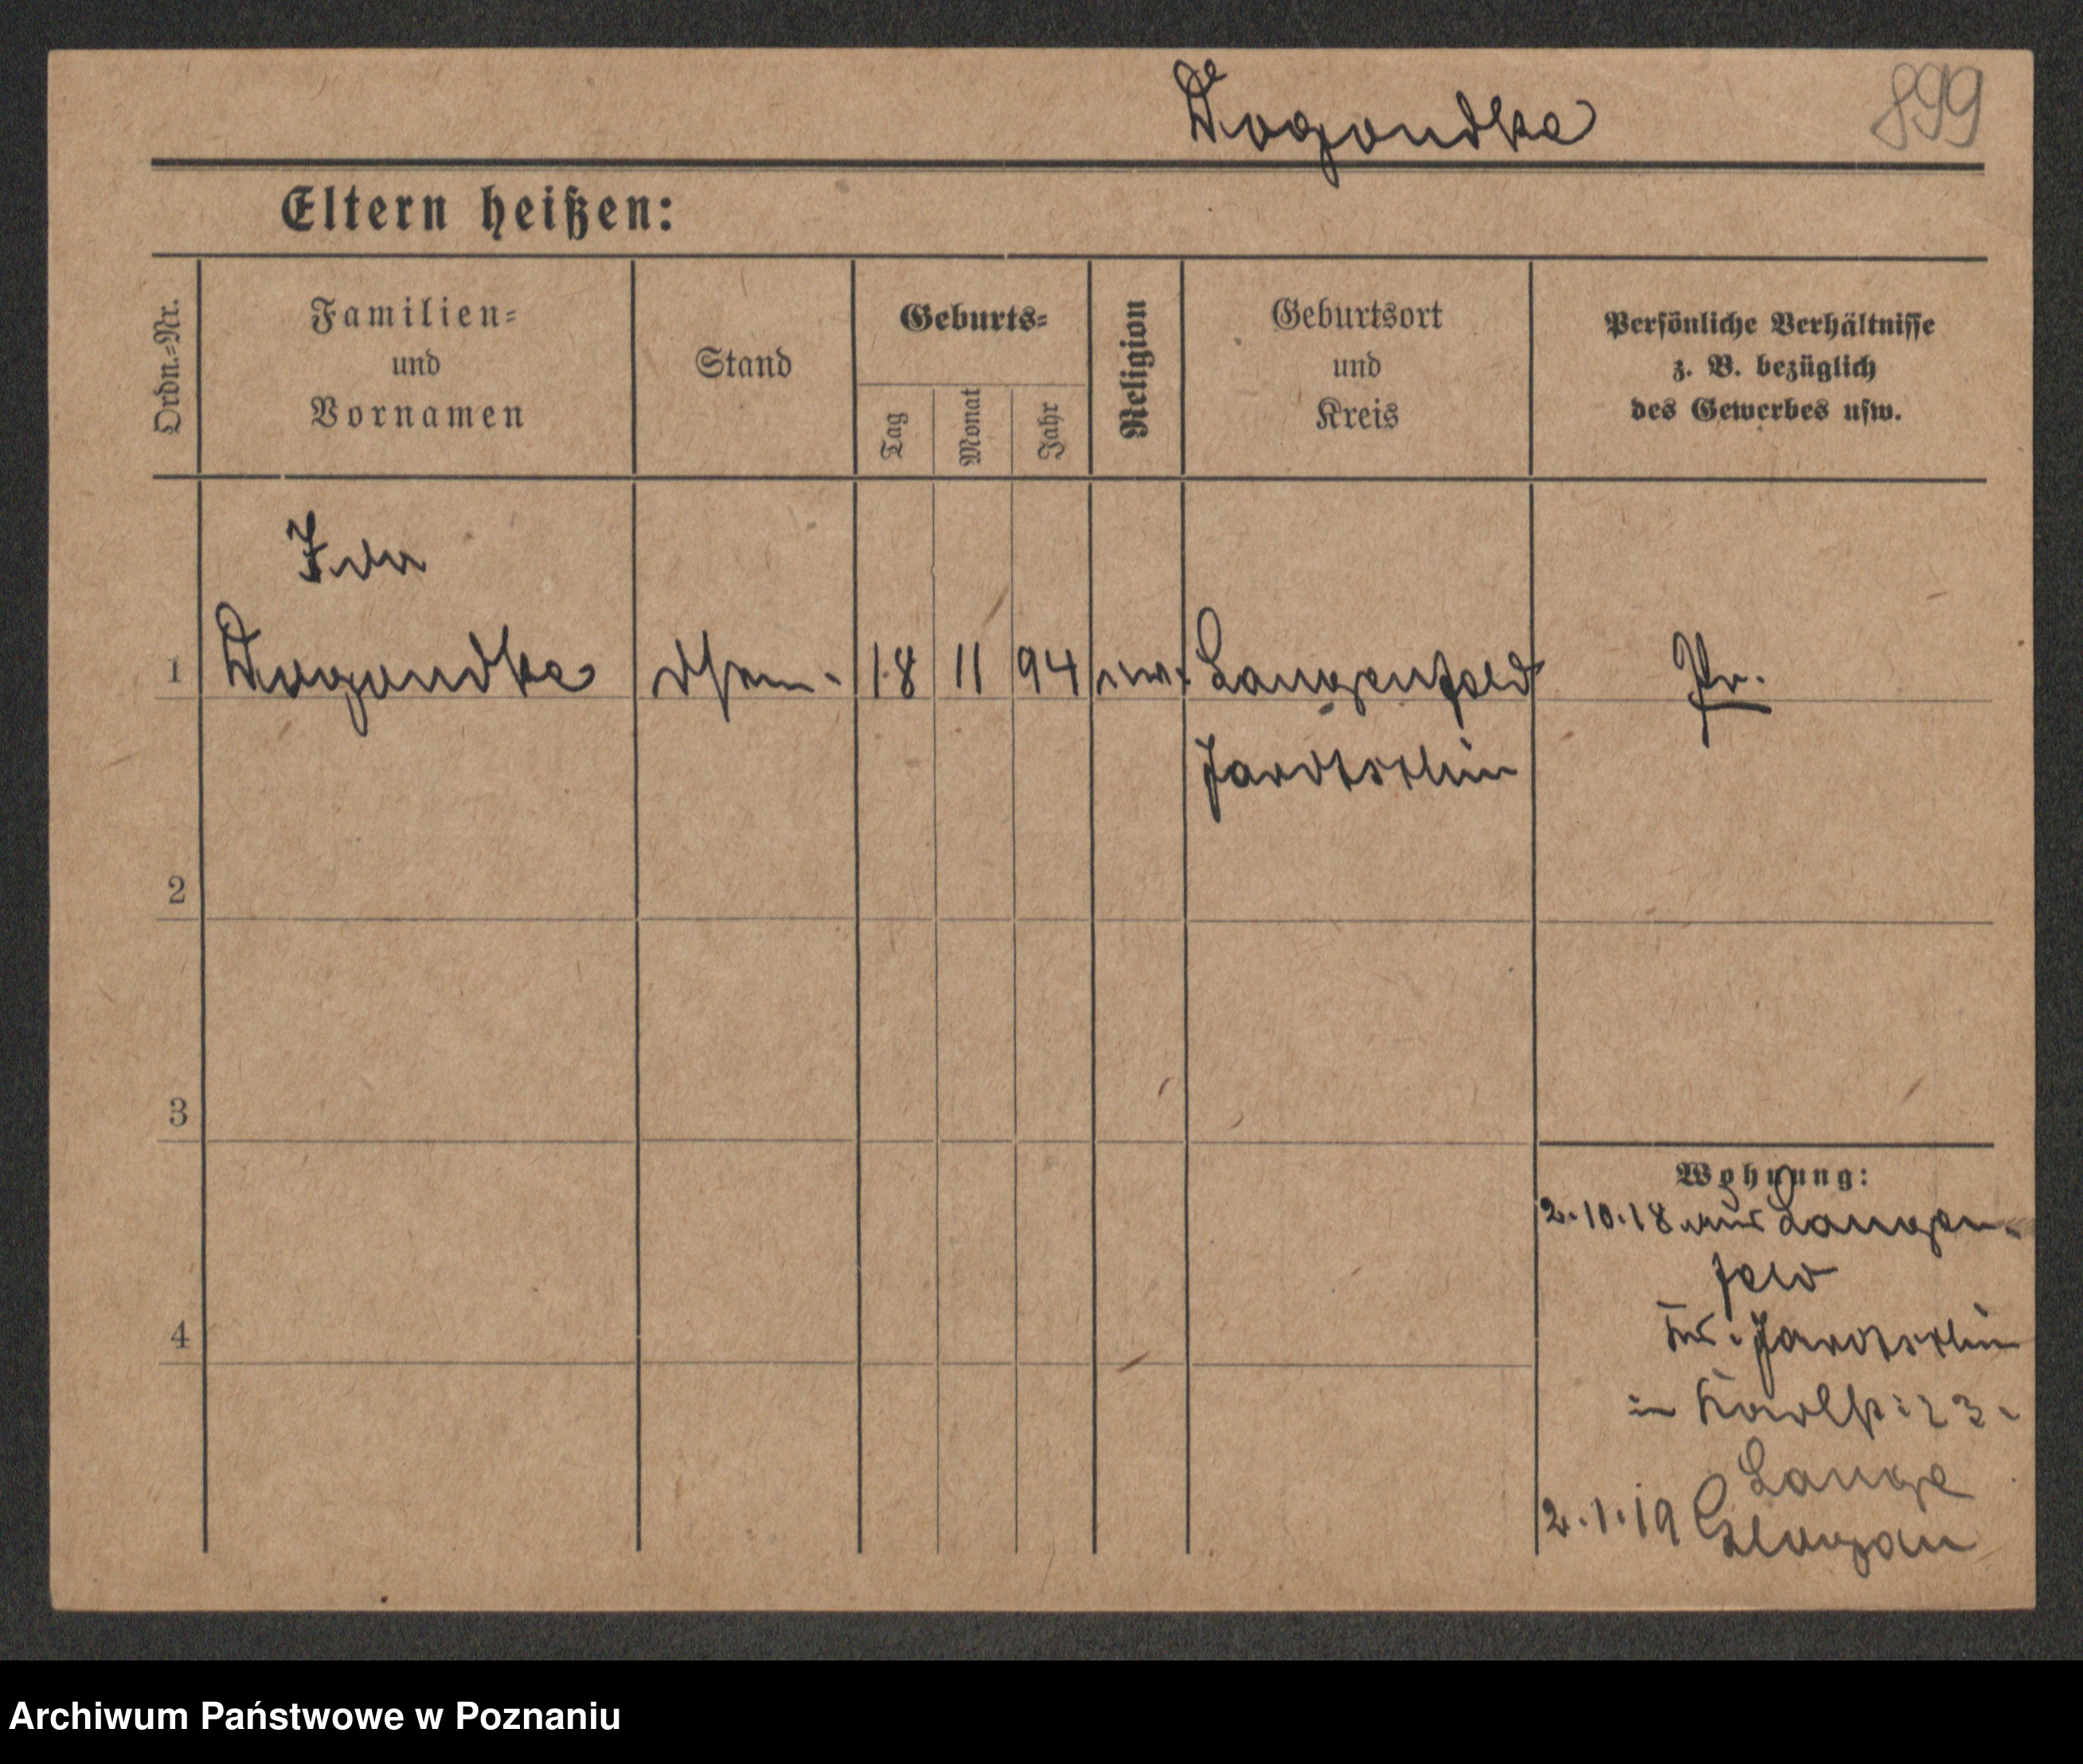 Dogondke
899
Eltern heißen:
Ordn.=Nr.
Familien=
und
Vornamen
Stand
Geburts=
Tag
Monat
Jahr
Religion
Geburtsort
und
Kreis
Persönliche Verhältnisse
z. B. bezüglich
des Gewerbes usw.
Ida
1 Dogondke 18 11 94 Langenfeld Pr.
Jarotschin
2
3
4
Wohnung:
2.10.18 aus Langen-
feld
Kr. Jarotschin
in Karlstr. 23.
Lange
2.1.19 Glogau
Archiwum Państwowe w Poznaniu